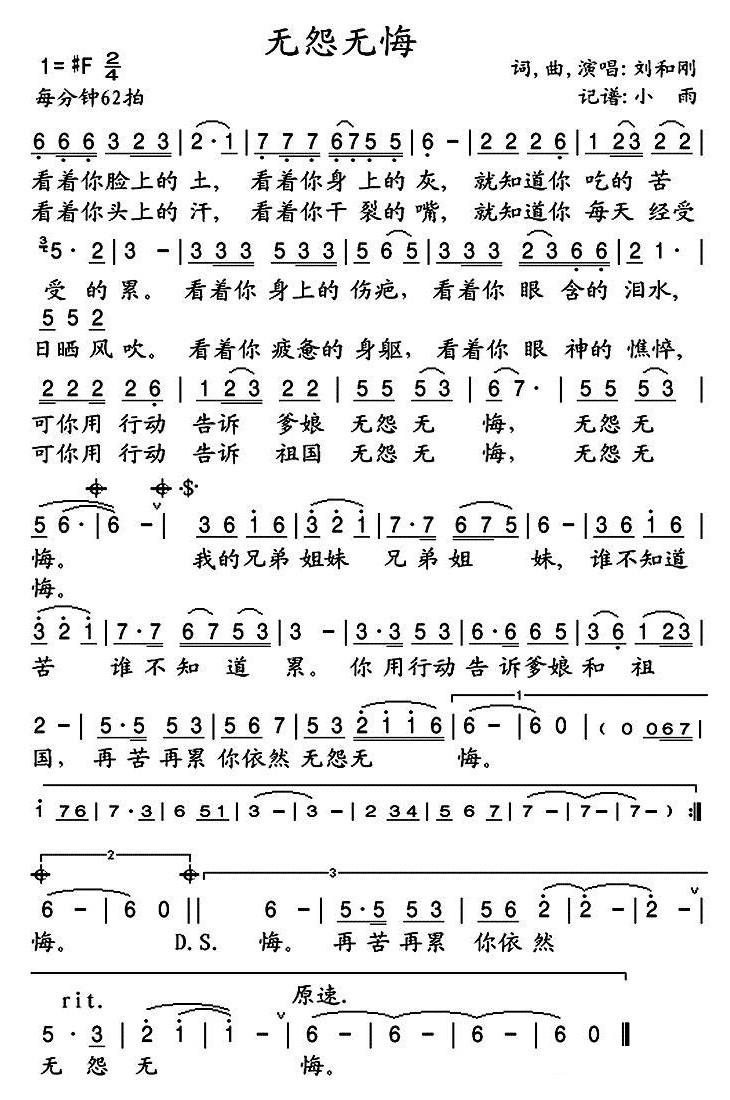 无怨无悔
1=♯F 2/4
词,曲,演唱:刘和刚
每分钟62拍
记谱:小 雨
6 6 6 3 2 3 | 2·1 | 7 7 7 6 7 5 5 | 6 - | 2 2 2 6 | 1 2 3 2 2 |
看着你脸上的 土, 看着你身 上的 灰, 就知道你 吃的 苦
看着你头上的 汗, 看着你干 裂的 嘴, 就知道你 每天 经受
3 5· 2 | 3 - | 3 3 3 5 3 3 | 5 6 5 | 3 3 3 2 3 6 6 | 2 1· |
受 的 累。 看着你 身上的 伤疤, 看着你 眼 含的 泪水,
5 5 2
日晒 风 吹。 看着你 疲惫的 身躯, 看着你 眼 神的 憔悴,
2 2 2 2 6 | 1 2 3 2 2 | 5 5 5 3 | 6 7· | 5 5 5 3 |
可你用 行动 告诉 爹娘 无怨 无 悔, 无怨 无
可你用 行动 告诉 祖国 无怨 无 悔, 无怨 无
5 6· | 6 - | 3 6 i 6 | 3 2 i | 7·7 6 7 5 | 6 - | 3 6 i 6 |
悔。 我的兄弟 姐妹 兄 弟 姐 妹, 谁不知道
悔。
3 2 i | 7·7 6 7 5 3 | 3 - | 3·3 5 3 | 6·6 6 5 | 3 6 1 2 3 |
苦 谁 不 知 道 累。 你 用行动 告诉爹娘 和 祖
2 - | 5·5 5 3 | 5 6 7 | 5 3 2 i i 6 | 6 - | 6 0 | ( 0 0 6 7 |
1
国, 再 苦 再累 你依然 无怨无 悔。
i 7 6 | 7·3 | 6 5 1 | 3 - | 3 - | 2 3 4 | 5 6 7 | 7 - | 7 - | 7 - ) :||
2
3
6 - | 6 0 || 6 - | 5·5 5 3 | 5 6 2 | 2 - | 2 - |
悔。 D.S. 悔。 再 苦 再累 你依 然
rit. 原速.
5· 3 | 2 i | i - | 6 - | 6 - | 6 - | 6 0 ||
无 怨 无 悔。